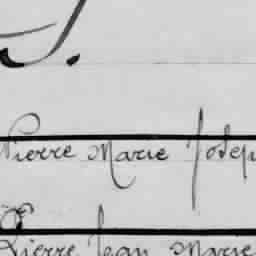 S.
Pierre Marie Josep
Pierre Jean Marie